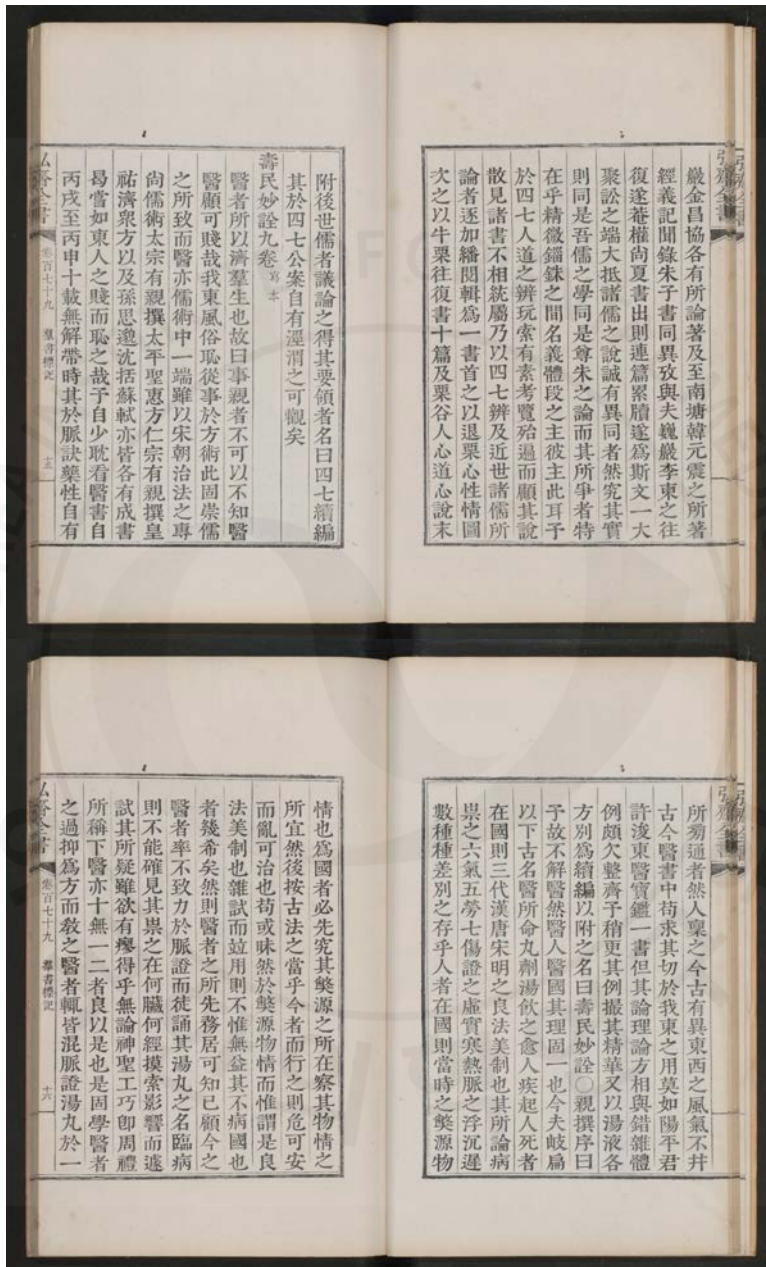 弘齋全書
巖金昌協各有所論著及至南塘韓元震之所著
經義記聞錄朱子書同異攷與夫巍巖李柬之往
復遂菴權尙夏書出則連篇累牘遂爲斯文一大
聚訟之端大抵諸儒之說誠有異同者然究其實
則同是吾儒之學同是尊朱之論而其所爭者特
在乎精微錙銖之間名義體段之主彼主此耳予
於四七人道之辨玩索有素考覽殆遍而顧其說
散見諸書不相統屬乃以四七辨及近世諸儒所
論者逐加繙閱輯爲一書首之以退栗心性情圖
次之以牛栗往復書十篇及栗谷人心道心說末
附後世儒者議論之得其要領者名曰四七續編
其於四七公案自有涇渭之可觀矣
壽民妙詮九卷 寫本
醫者所以濟羣生也故曰事親者不可以不知醫
醫顧可賤哉我東風俗恥從事於方術此固崇儒
之所致而醫亦儒術中一端雖以宋朝治法之專
尙儒術太宗有親撰太平聖惠方仁宗有親撰皇
祐濟衆方以及孫思邈沈括蘇軾亦皆各有成書
曷嘗如東人之賤而恥之哉予自少耽看醫書自
丙戌至丙申十載無解帶時其於脈訣藥性自有
弘齋全書 卷百七十九 羣書標記 十五
弘齋全書
所菊通者然人稟之今古有異東西之風氣不幷
古今醫書中苟求其切於我東之用莫如陽平君
許浚東醫寶鑑一書但其論理論方相與錯雜體
例頗欠整齊予稍更其例撮其精華又以湯液各
方別爲續編以附之名曰壽民妙詮○親撰序曰
予故不解醫然醫人醫國其理固一也今夫岐扁
以下古名醫所命丸劑湯飮之愈人疾起人死者
在國則三代漢唐宋明之良法美制也其所論病
祟之六氣五勞七傷證之虛實寒熱脈之浮沉遲
數種種差別之存乎人者在國則當時之獘源物
情也爲國者必先究其獘源之所在察其物情之
所宜然後按古法之當乎今者而行之則危可安
而亂可治也苟或昧然於獘源物情而惟謂是良
法美制也雜試而竝用則不惟無益其不病國也
者幾希矣然則醫者之所先務居可知已顧今之
醫者率不致力於脈證而徒誦其湯丸之名臨病
則不能確見其祟之在何臟何經摸索影響而遽
試其所疑雖欲有瘳得乎無論神聖工巧卽周禮
所稱下醫亦十無一二者良以是也是固學醫者
之過抑爲方而敎之醫者輒皆混脈證湯丸於一
弘齋全書 卷百七十九 羣書標記 十六